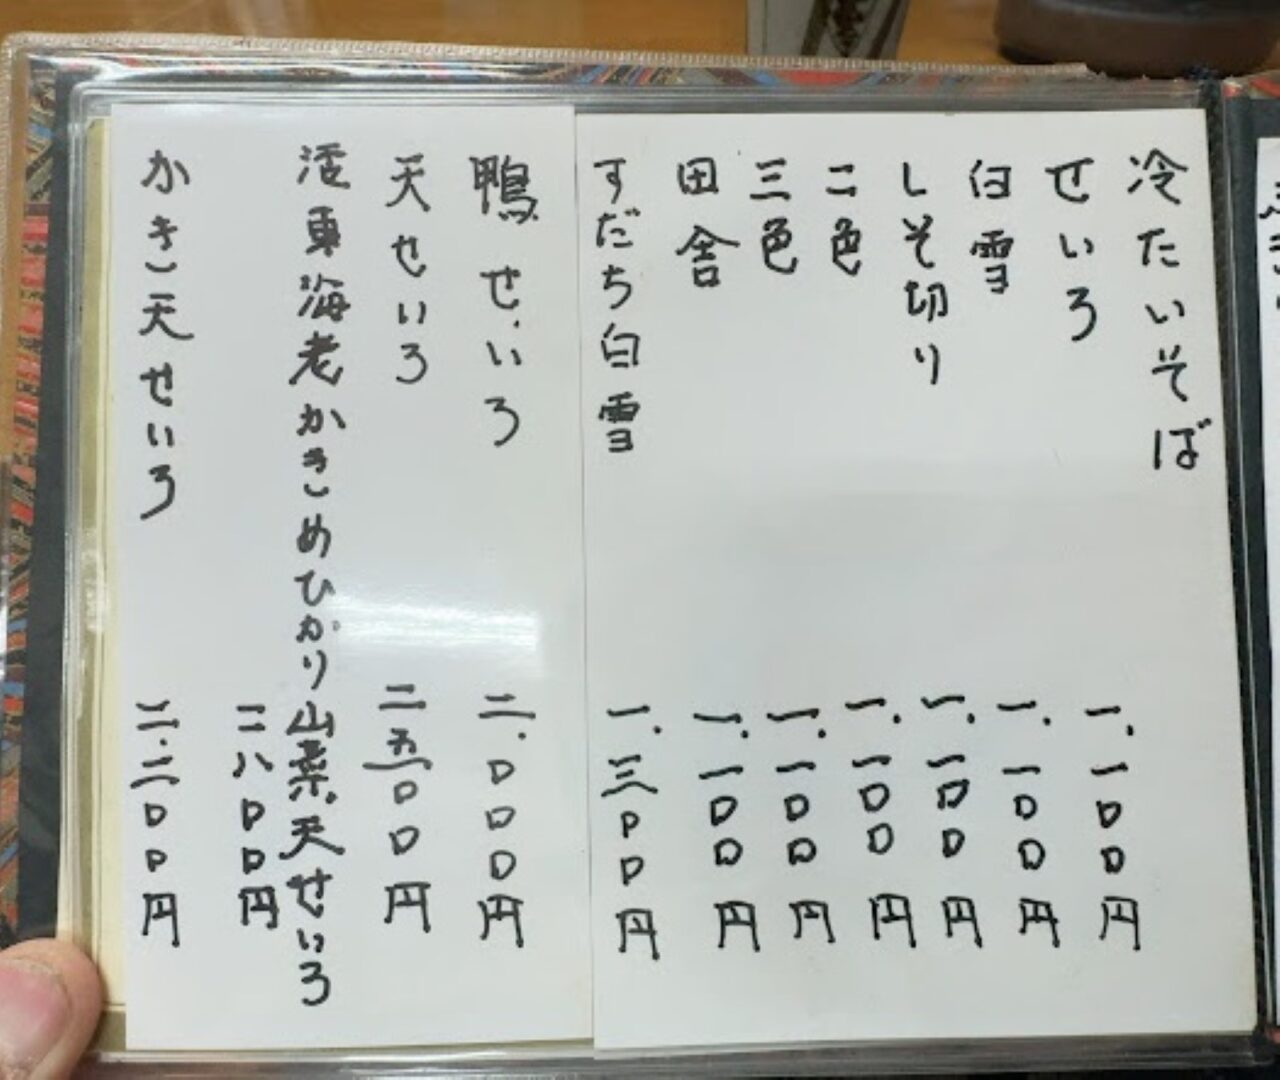 冷たいそば
せいろ 一.一〇〇円
白雪 一.一〇〇円
しそ切り 一.一〇〇円
二色 一.一〇〇円
三色 一.一〇〇円
田舎 一.一〇〇円
すだち白雪 一.三〇〇円
鴨せいろ 二.〇〇〇円
天せいろ 二五〇〇円
活車海老かきめひかり山菜天せいろ
二八〇〇円
かき天せいろ 二.二〇〇円